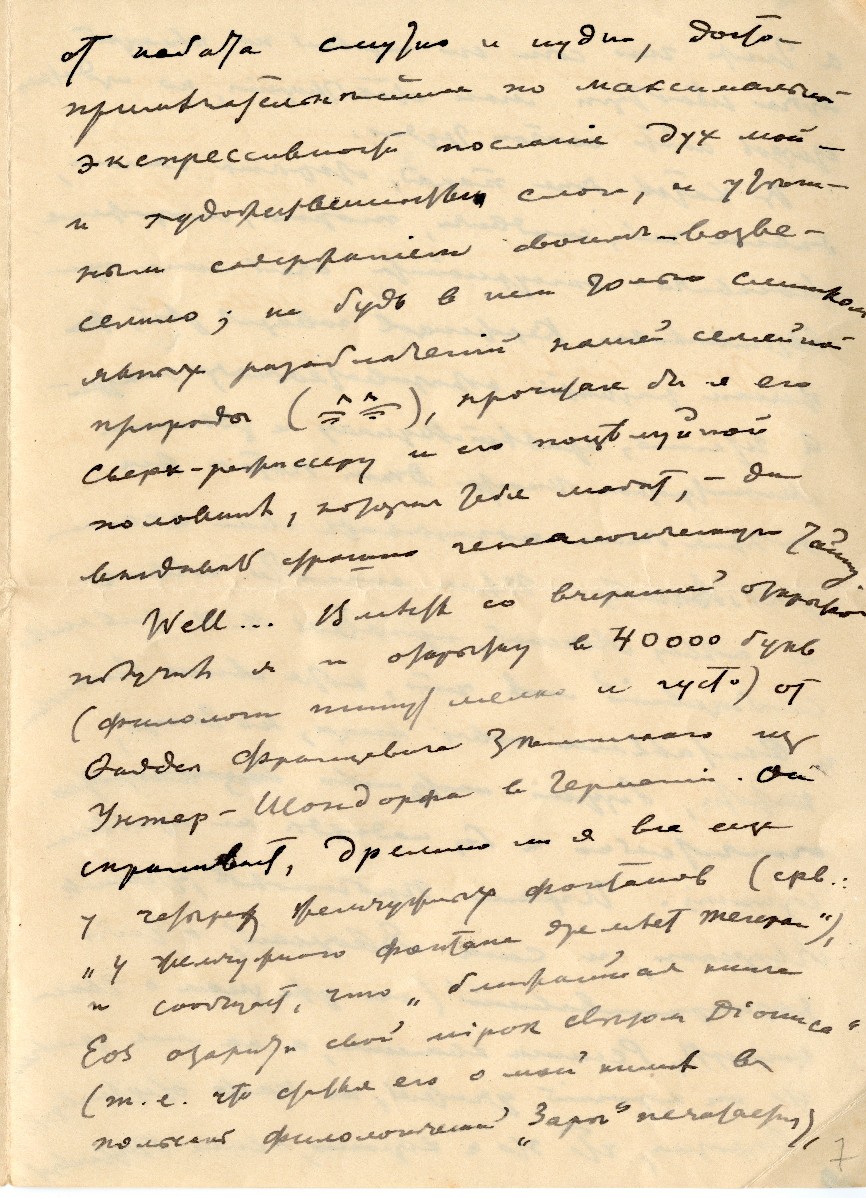 от набата смутно и нудно, досто-
примѣчательнѣйшее по максимальной
экспрессивности посланіе дух мой –
и художественностью слога, и
ным содержаніем своим – возве-
селило; не будь в нем только слишком
явных разоблаченій нашей семейной
природы ( ), прочитал бы я его
сверх-режиссеру и его поцѣлуйной
половинѣ, которая тебя любит, – да
выдавать страшно генеалогическую тайну
Well... Вмѣстѣ со вчерашней открыткой
получил я и открытку в 40000 букв
(филологи пишут мелко и густо) от
Фаддея Францевича Зѣлинскаго из
Унтер-Шондорфа в Германіи. Он
спрашивает, дремлю ли я все еще
у четырех жемчужных фонтанов (срв.:
"У жемчужного фонтана дремлет Тегеран"),
и сообщает, что "ближайшая книга
Eos озарит свой мірок свѣтом Діониса"
(т.е. что статья его о моей книгѣ в
польской филологической "Зарѣ" печатается),
7